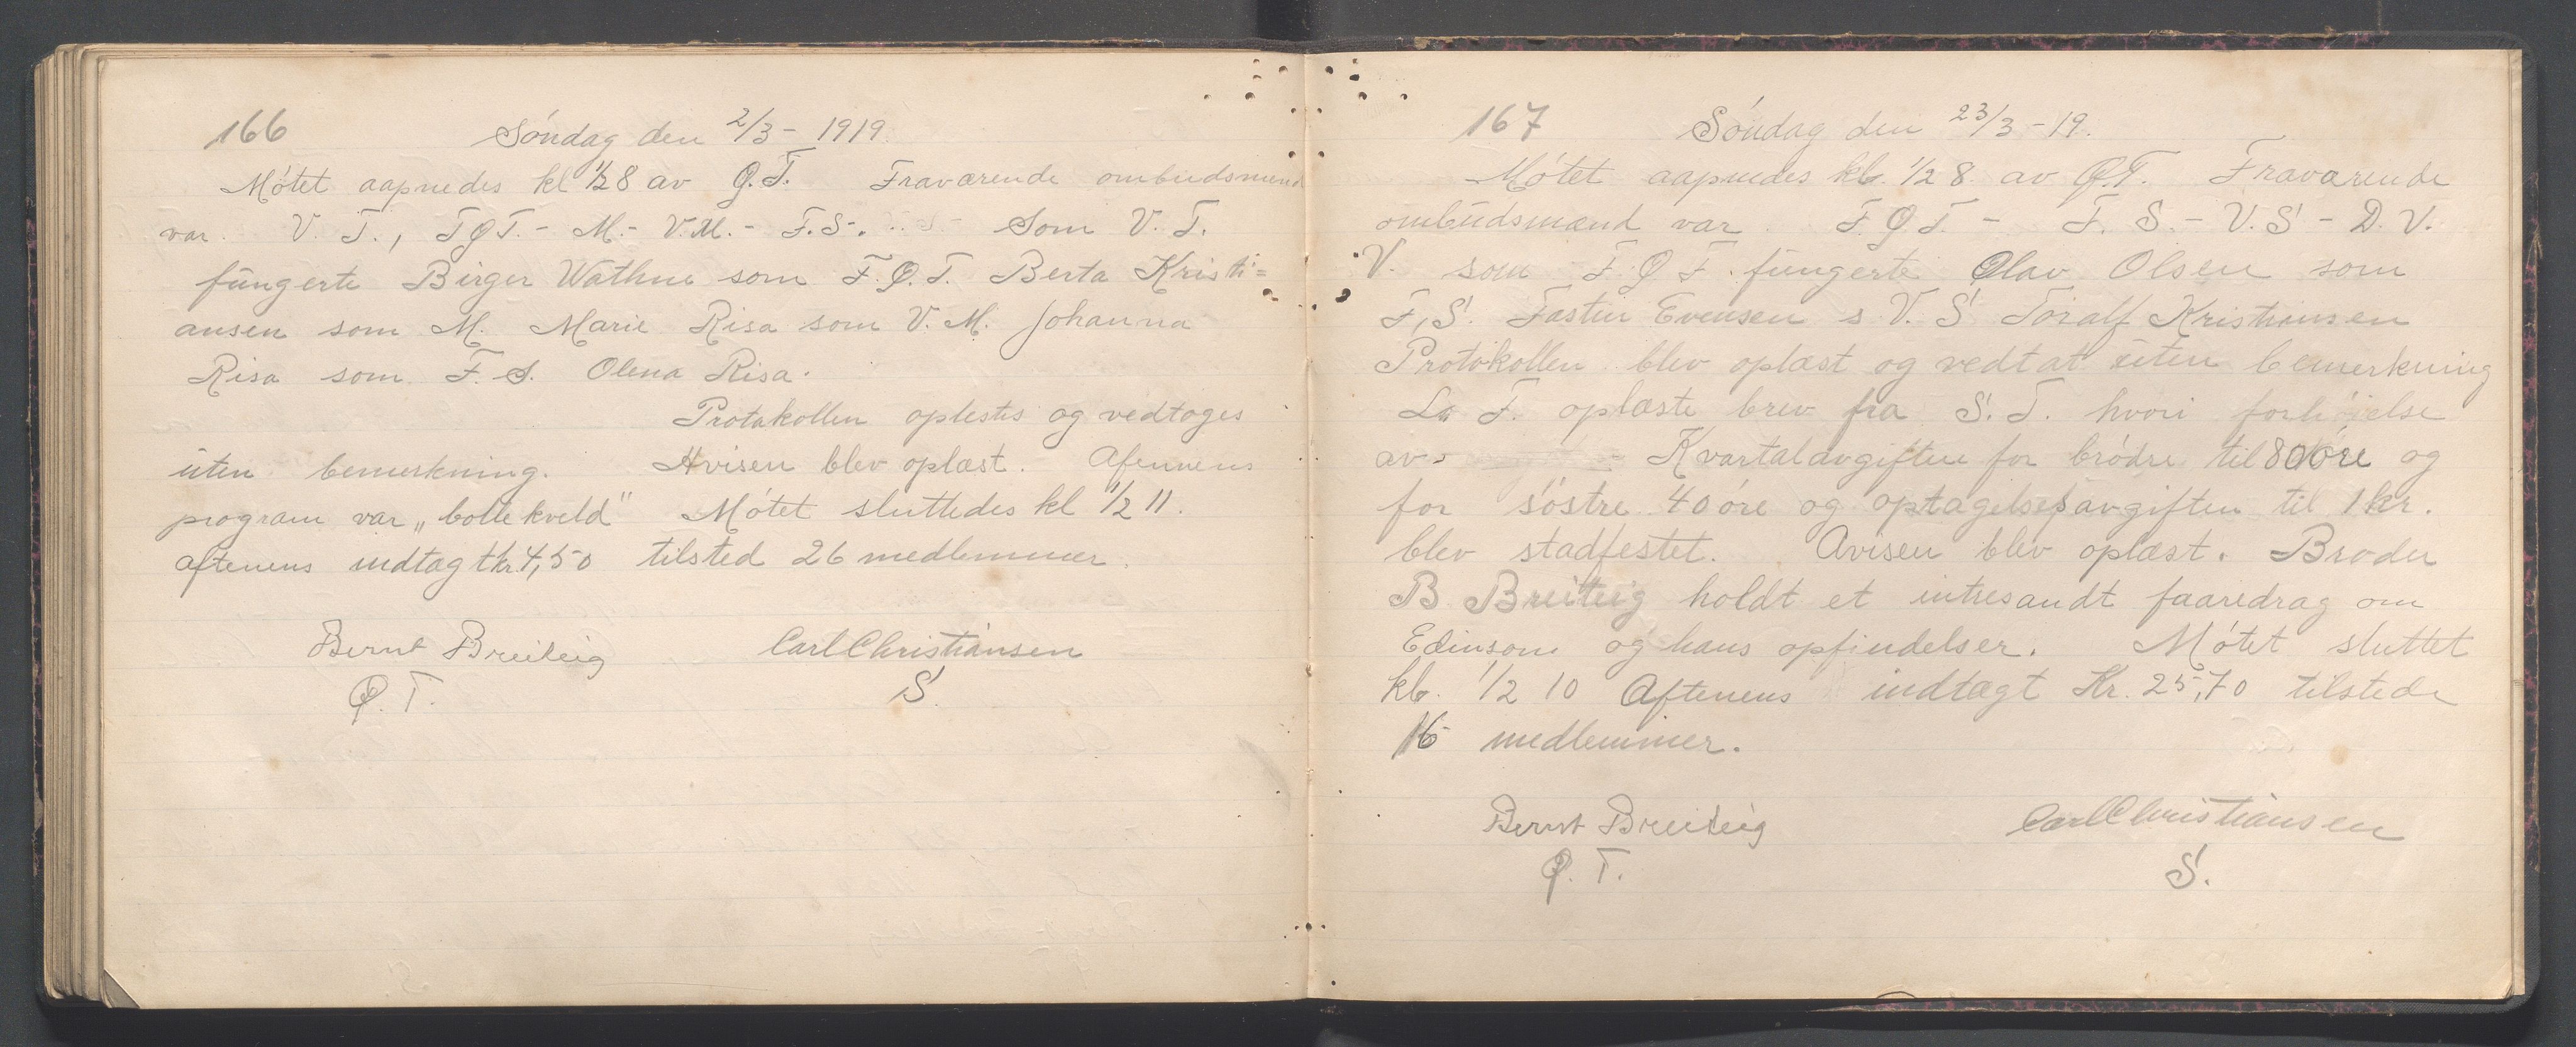 166 Søndag den 2/3 - 1919.
Møtet aapnedes kl 1/2 8 av Q.T. Fraværende ombudsmend
var. V. T., FQT. - M. - V.M. - F.S-. Som V. T.
fungerte Birger Wathne som F.Q.T. Berta Kristi=
ansen som M. Marie Risa som V. M. Johanna
Risa som F. S. Olena Risa.
Protokollen oplestes og vedtoges
uten bemerkning. Avisen blev oplæst. Aftenens
program var „bollekveld" Møtet sluttedes kl 1/2 11.
aftenens indtægt kr 4,50 tilsted 26 medlemmer.
Bernt Breiteig Carl Christiansen
Q. T. S.
167 Søndag den 23/3 - 19.
Møtet aapnedes kl. 1/2 8. av Q.T. Fraværende
ombudsmænd var. F.Q.T. - F. S. - V. S - D. V.
V. som F.Q.T. fungerte Olav Olsen som
F,S. Evensen s V. S Toralf Kristiansen
Protokollen blev oplæst og vedtat uten bemerkning
L. T. oplæste brev fra S. T. hvori forhøielse
av Kvartalavgiften for brødre til 80 øre og
for søstre 40 øre og optagelsesavgiften til 1 kr.
blev stadfestet. Avisen blev oplæst. Broder
B Breiteig holdt et intresandt faaredrag om
Edinson og hans opfindelser. Møtet sluttet
kl. 1/2 10 Aftenens indtægt Kr. 25,70 tilstede
16 medlemmer.
Bernt Breiteig Carl Christiansen
Q. T. S.